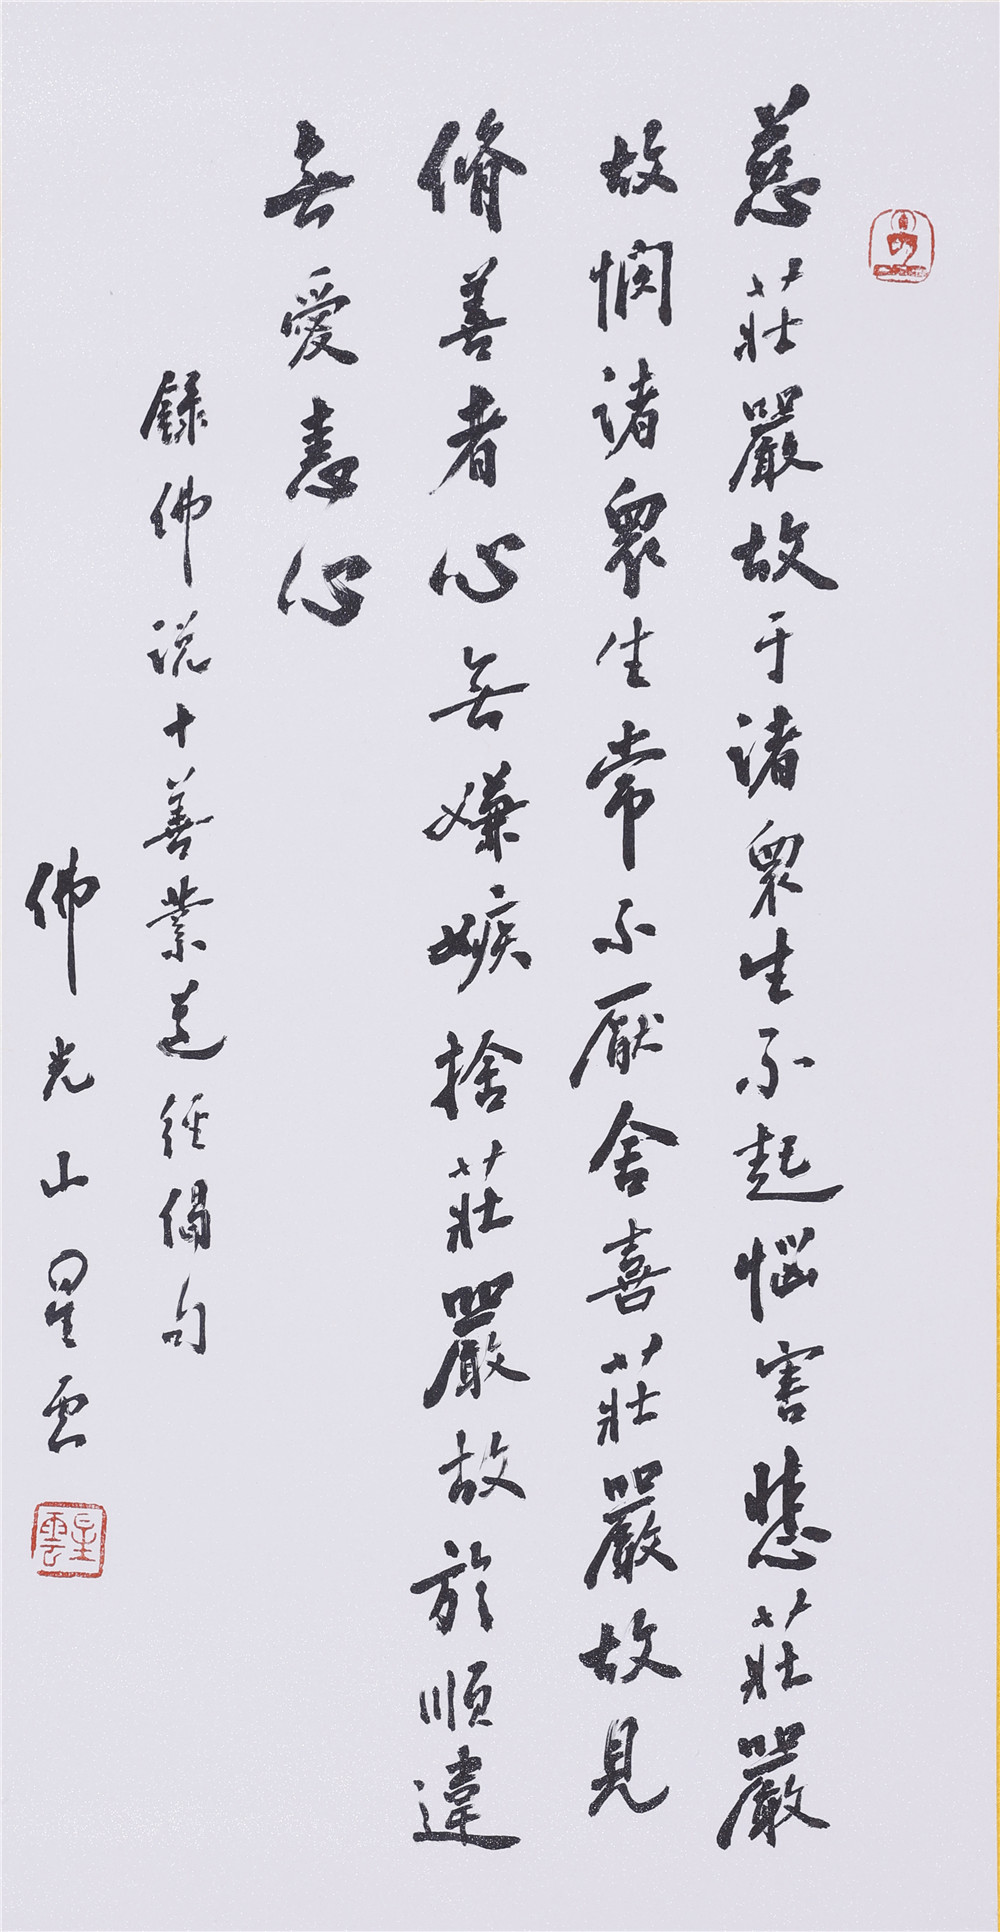 慈莊嚴故于諸眾生不起惱害悲莊嚴
故憫諸眾生常不厭舍喜莊嚴故見
脩善者心无嫌嫉捨莊嚴故於順違
无愛恚心
錄佛说十善業道經偈句
佛光山星云
星雲